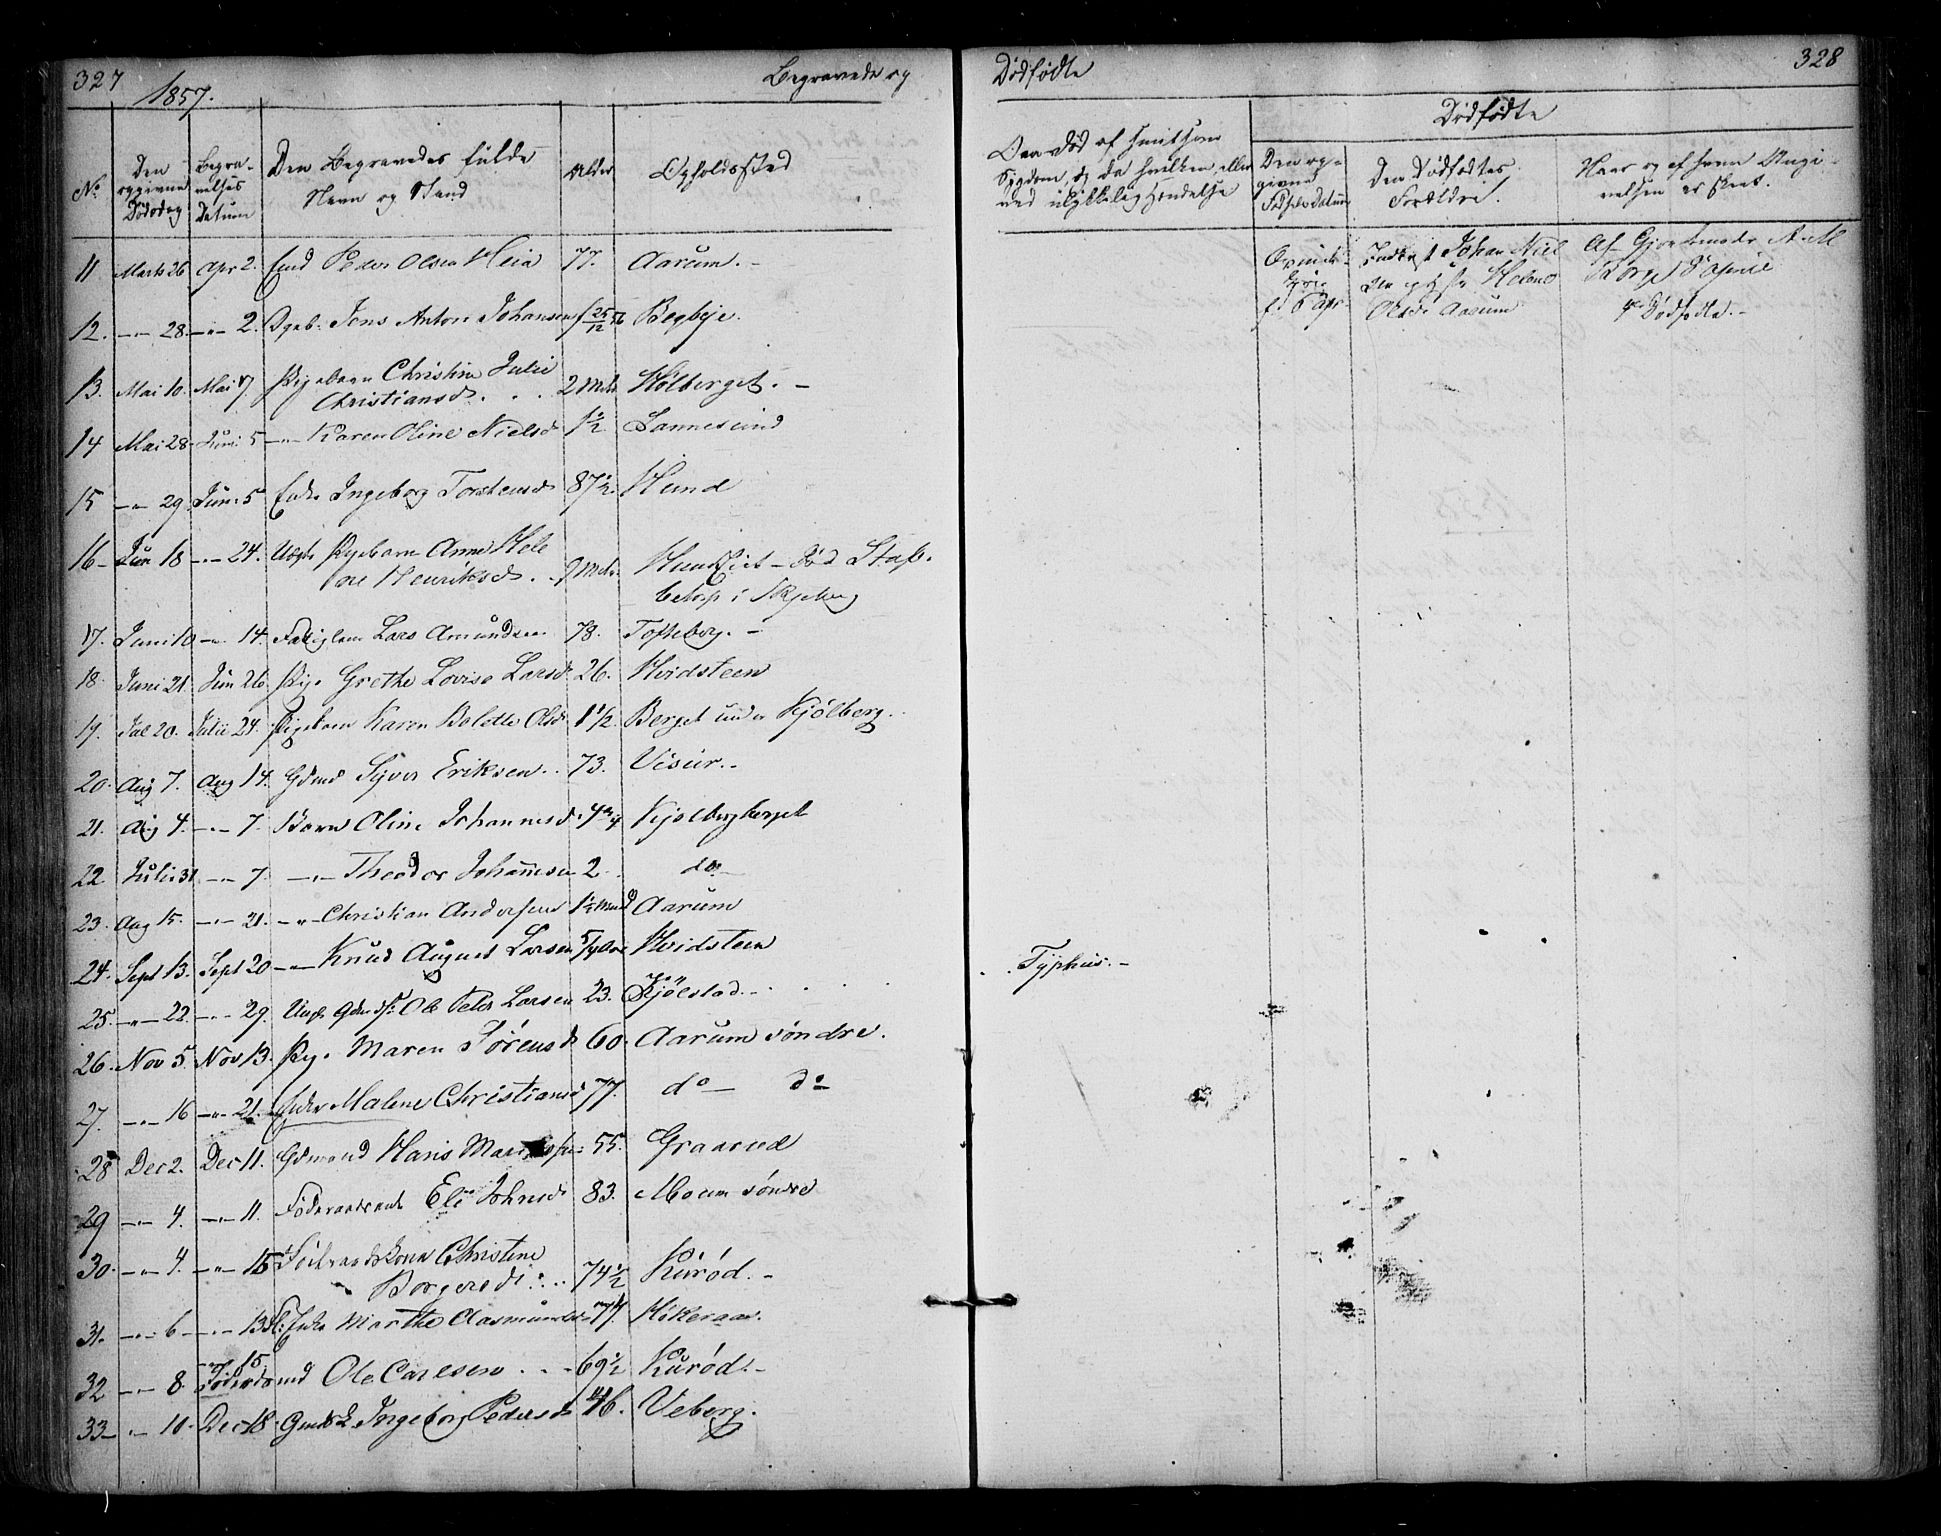 327
1857.
Begravede og
No
Den opgivne Dødsdag
Begravelses Datum
Den Begravedes fulde Navn og Stand
Alder
Opholdssted
11 Marts 26 Apr 2. Peder Olsen Heia 77. Aarum. -
12. -"- 28. -"- 2. Jens Anton Johansen Begbye.
13. Mai 10. Mai 17 Pigebarn Christine Julie
Christiansd. . . 2 Mdr. Kølberget. -
14 Mai 28 Juni 5 -"- Karen Oline Nielsd 1½ Lannesund
15 -"- 29 Juni 5 Enke Ingeborg Torstensd 87½. Hund
16 - Jun 18 -"- 24. Uægte Pigebarn Anne Hele
ne Henriksd . . 9 Mdr. Hund Eiet - død Stab-
betorp i Skjeberg
17. Juni 10 -"- 14. Fattiglem Lars Amundsen 78. Tofteberg. -
18 Juni 21. Jun 26. Pige Grethe Lovise Larsd 26. Hvidsteen
19. Jul 20. Julii 24. Pigebarn Karen Bolette Olsd 1½. Berget under Kjølberg.
20. Aug 7. Aug 14. Gdmd Syver Eriksen . . 73. Visur. -
21. Aug 4. -"- 7. Barn Oline Johannesd. 4¾ Kjølbergberget
22 Julii 31 -"- 7. -"- Theodor Johannesen 2 do
23. Aug 15. -"- 21. -"- Christian Andersen 1½ Mnd Aarum
24. Sept 13. Sept 20 -"- Knud August Larsen Hvidsteen
25. -"- 22. -"- 29. Ungk. Ole Peter Larsen 23. Kjølstad. - . . .
26. Nov 5. Nov 13. Pige Maren Sørensd 60. Aarum søndre.
27. -"- 16 -"- 21. Enke Malene Christiansd 77. do - do
28 Dec 2. Dec 11. Gdmand Hans 55. Graarud
29 -"- 4. -"- 11. Føderaadsenk Eli Johnsd 83. Moum søndre
30. -"- 4. -"- 15 Føderaadskone Christine
Borgersd . . . 74½ Kurød. -
31. -"- 6 -"- 13 Enke Marthe Aasmundsd 77. Kikeraae.
32 -"- 8. -"- 15 Føderdsmd Ole Carlsen . . . 69½ Kurød. -
33 -"- 10. Dec 18 Ingeborg Pedersd 46. Veberg.
328
Dødfødte
Om død af smitsom
Sygdom, og da hvilken, eller
ved ulykkelig Hændelse
Dødfødte
Den opgivne Fødsels Datum
Den Dødfødtes Forældre.
Naar og af hvem Angivelsen er skeet.
f. 5 Apr
Johan Niel
sen og Helene
Olsd. Aarum
Af Gjordemoder A. M.
Dødfødte. -
Typhus. -